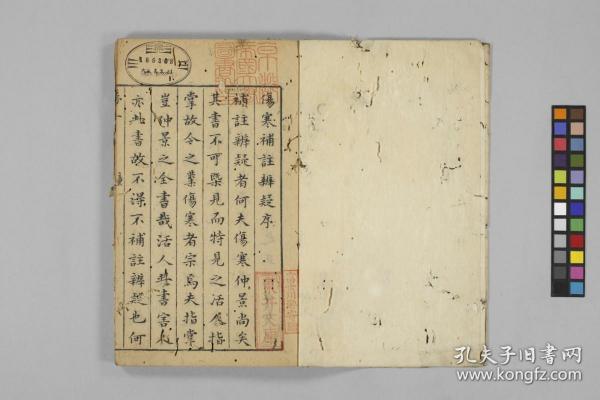 傷寒補註辨疑序
補註辨疑者何夫傷寒仲景尚矣
其書不可槩見而特見之活人指
掌故令之業傷寒者宗焉夫指掌
豈仲景之全書哉活人
亦此書故不得不補註辨疑也何
孔夫子旧书网
www.kongfz.com